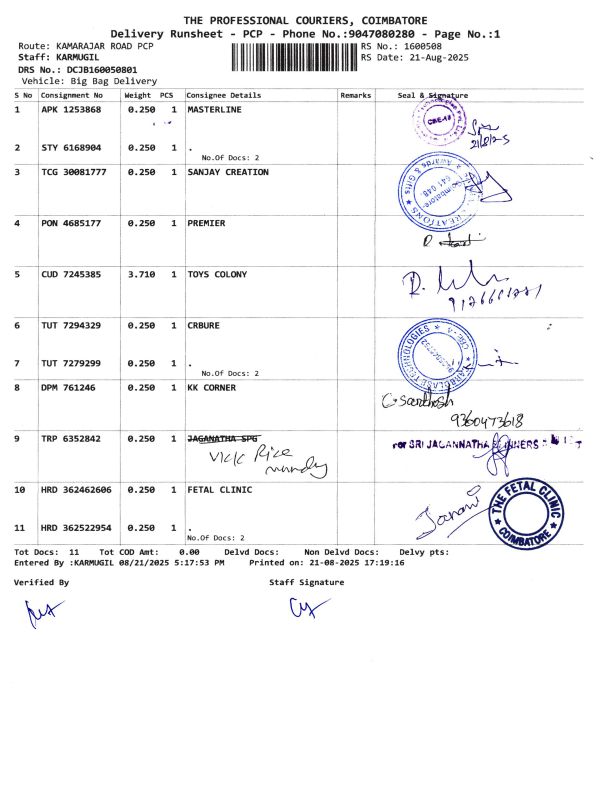 THE PROFESSIONAL COURIERS, COIMBATORE
Delivery Runsheet - PCP - Phone No.:9047080280 - Page No.:1
Route: KAMARAJAR ROAD PCP RS No.: 1600508
Staff: KARMUGIL RS Date: 21-Aug-2025
DRS No.: DCJB160050801
Vehicle: Big Bag Delivery
S No Consignment No Weight PCS Consignee Details Remarks Seal & Signature
1 APK 1253868 0.250 1 MASTERLINE
CBE-18
21/8/25
2 STY 6168904 0.250 1 .
No.Of Docs: 2
3 TCG 30081777 0.250 1 SANJAY CREATION
Awards & Gifts
Coimbatore-
641 048
4 PON 4685177 0.250 1 PREMIER
5 CUD 7245385 3.710 1 TOYS COLONY
6 TUT 7294329 0.250 1 CRBURE
TECHNOLOGIES
7 TUT 7279299 0.250 1 .
No.Of Docs: 2
8 DPM 761246 0.250 1 KK CORNER
G Santhosh
9360473618
9 TRP 6352842 0.250 1 JAGANATHA SPG
for SRI JAGANNATHA
Rice
10 HRD 362462606 0.250 1 FETAL CLINIC
Janani
THE FETAL CLINIC
COIMBATORE
11 HRD 362522954 0.250 1 .
No.Of Docs: 2
Tot Docs: 11 Tot COD Amt: 0.00 Delvd Docs: Non Delvd Docs: Delvy pts:
Entered By :KARMUGIL 08/21/2025 5:17:53 PM Printed on: 21-08-2025 17:19:16
Verified By Staff Signature